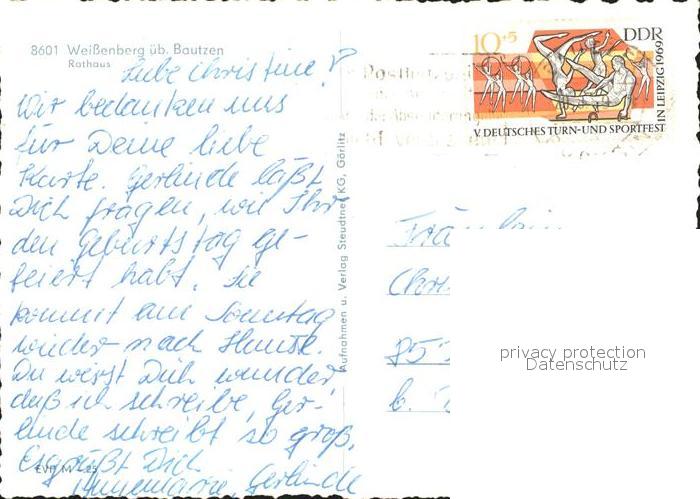 8601 Weißenberg üb. Bautzen
Rathaus
Liebe Christine!
Wir bedanken uns
für Deine liebe
Karte. Gerlinde läßt
Dich fragen, wie Ihr
den Geburtstag ge-
feiert habt. Sie
kommt am Sonntag
wieder nach Hause.
Du wirst Dich wundern
daß ich schreibe, Ger-
linde schreibt so groß.
Es grüßt Dich
Annemarie, Gerlinde
EVP M -.25
Aufnahmen u. Verlag Steudtner KG, Görlitz
10+5
DDR
V. DEUTSCHES TURN- UND SPORTFEST
IN LEIPZIG 1969
Fräulein
Chri
85
b.
privacy protection
Datenschutz